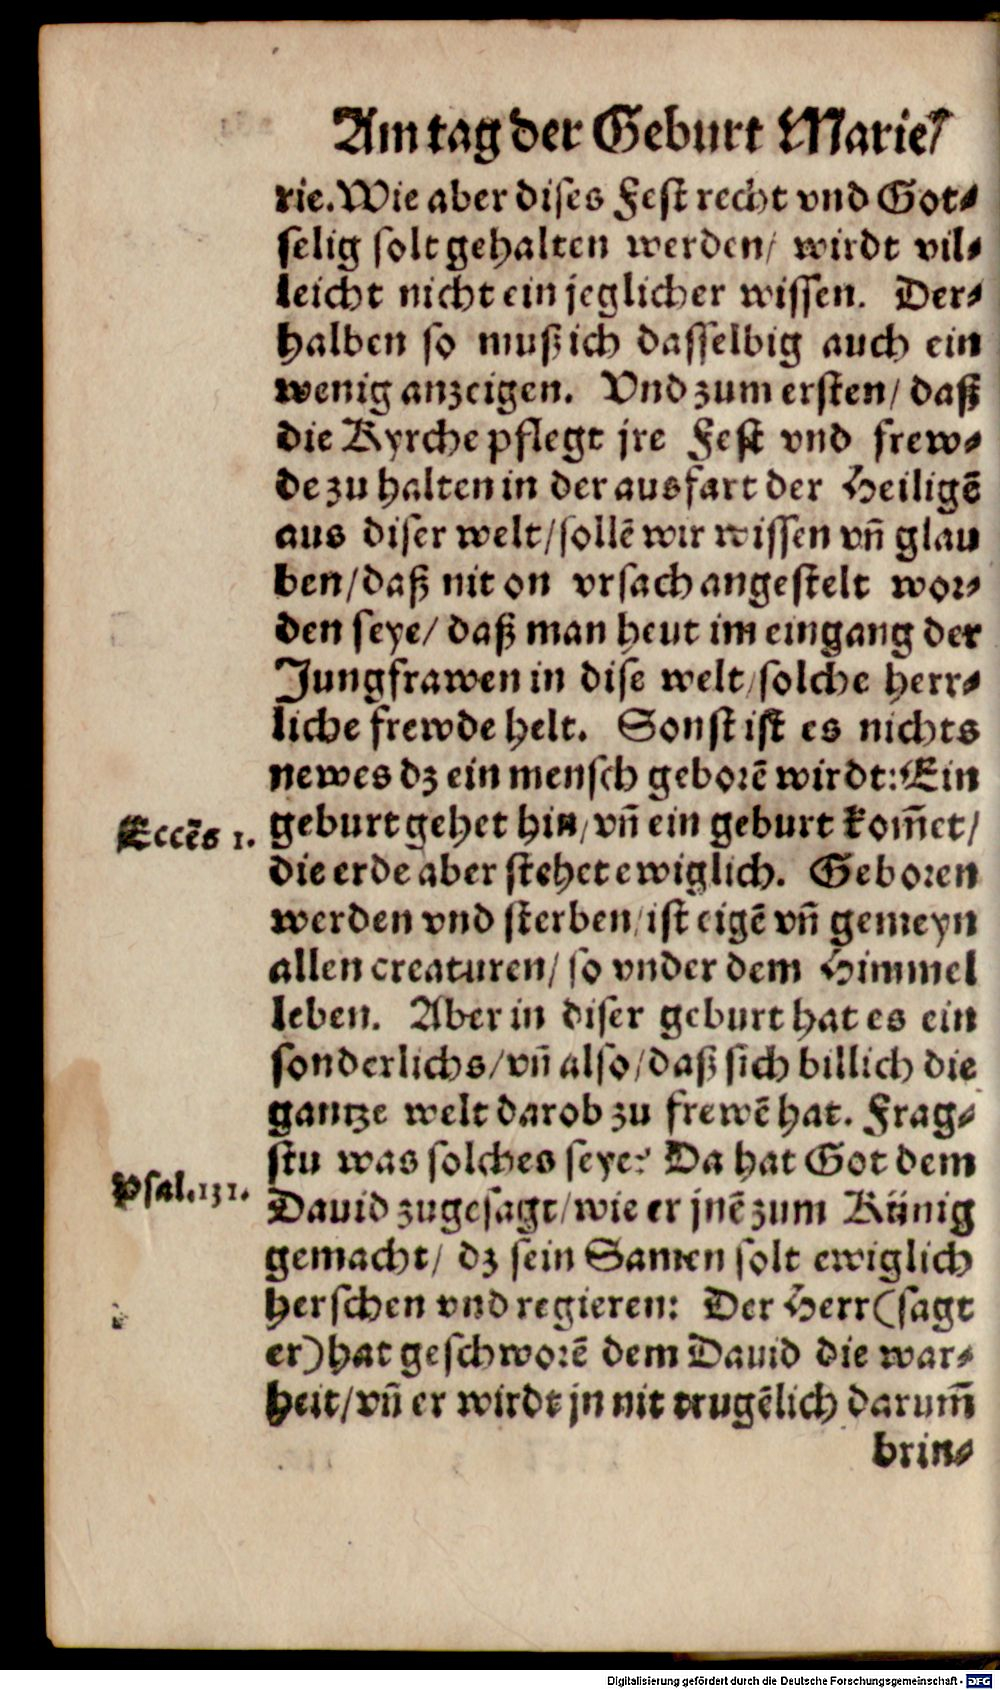 Am tag der Geburt Marie/
rie. Wie aber dises Fest recht vnd Got-
selig solt gehalten werden/ wirdt vil-
leicht nicht ein jeglicher wissen. Der-
halben so muß ich dasselbig auch ein
wenig anzeigen. Vnd zum ersten/ daß
die Kyrche pflegt jre Fest vnd frew-
de zu halten in der ausfart der Heiligē
aus diser welt/ sollē wir wissen vn̄ glau
ben/ daß nit on vrsach angestelt wor-
den seye/ daß man heut im eingang der
Jungfrawen in dise welt/ solche herr-
liche frewde helt. Sonst ist es nichts
newes dz ein mensch geborē wirdt: Ein
Eccēs 1. geburt gehet hin/ vn̄ ein geburt kom̄et/
die erde aber stehet ewiglich. Geboren
werden vnd sterben/ ist eigē vn̄ gemeyn
allen creaturen/ so vnder dem Himmel
leben. Aber in diser geburt hat es ein
sonderlichs/ vn̄ also/ daß sich billich die
gantze welt darob zu frewē hat. Frag-
stu was solches seye? Da hat Got dem
Psal. 131. Dauid zugesagt/ wie er jnē zum Künig
gemacht/ dz sein Samen solt ewiglich
herschen vnd regieren: Der Herr (sagt
er) hat geschworē dem Dauid die war-
heit/ vn̄ er wirdt jn nit trugēlich darum̄
brin-
Digitalisierung gefördert durch die Deutsche Forschungsgemeinschaft - DFG